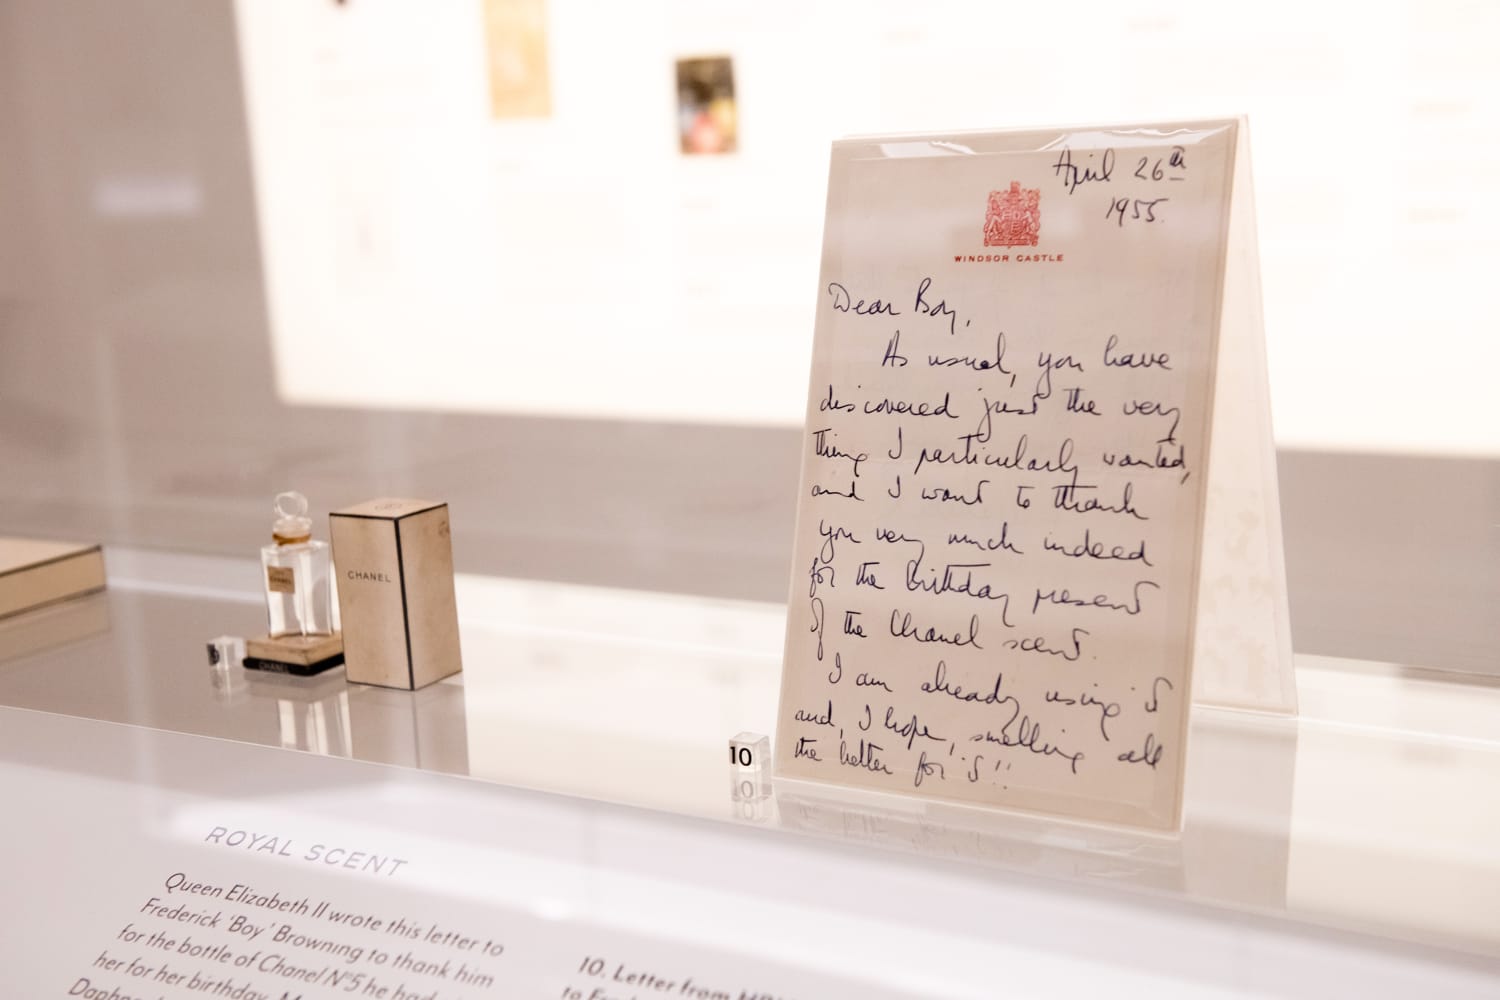 April 26th
1955.
WINDSOR CASTLE
Dear Boy,
As usual, you have
discovered just the very
thing I particularly wanted,
and I want to thank
you very much indeed
for the birthday present
of the Chanel scent.
I am already using it
and, I hope, smelling all
the better for it!!
CHANEL
CHANEL
CHANEL
9
10
ROYAL SCENT
Queen Elizabeth II wrote this letter to
Frederick 'Boy' Browning to thank him
for the bottle of Chanel N°5 he had
her for her birthday.
10. Letter from HRH
to